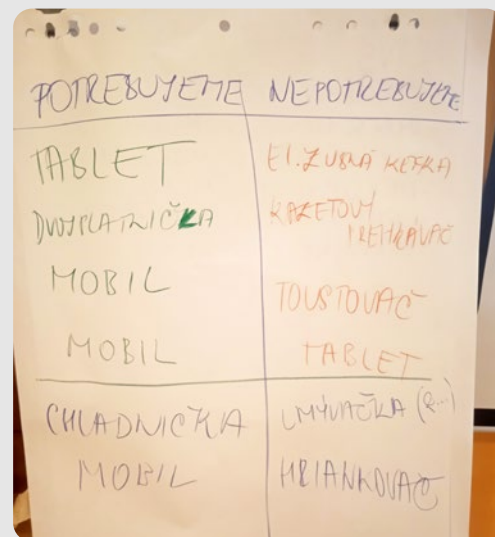 POTREBUJEME NEPOTREBUJEME
TABLET El. ZUBNÁ KEFKA
DVOJPLATNIČKA KAZETOVÝ
PREHRÁVAČ
MOBIL
TOUSTOVAČ
MOBIL TABLET
CHLADNIČKA UMÝVAČKA (R...)
MOBIL HRIANKOVAČ